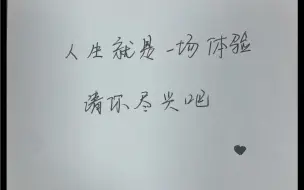 人生就是一场体验
请你尽兴吧